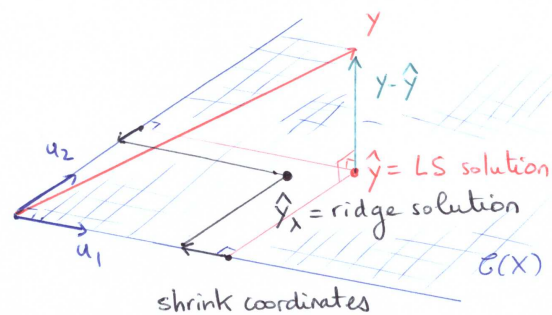 y
y-ŷ
u₂
ŷ = LS solution
ŷ_λ = ridge solution
u₁
C(X)
shrink coordinates